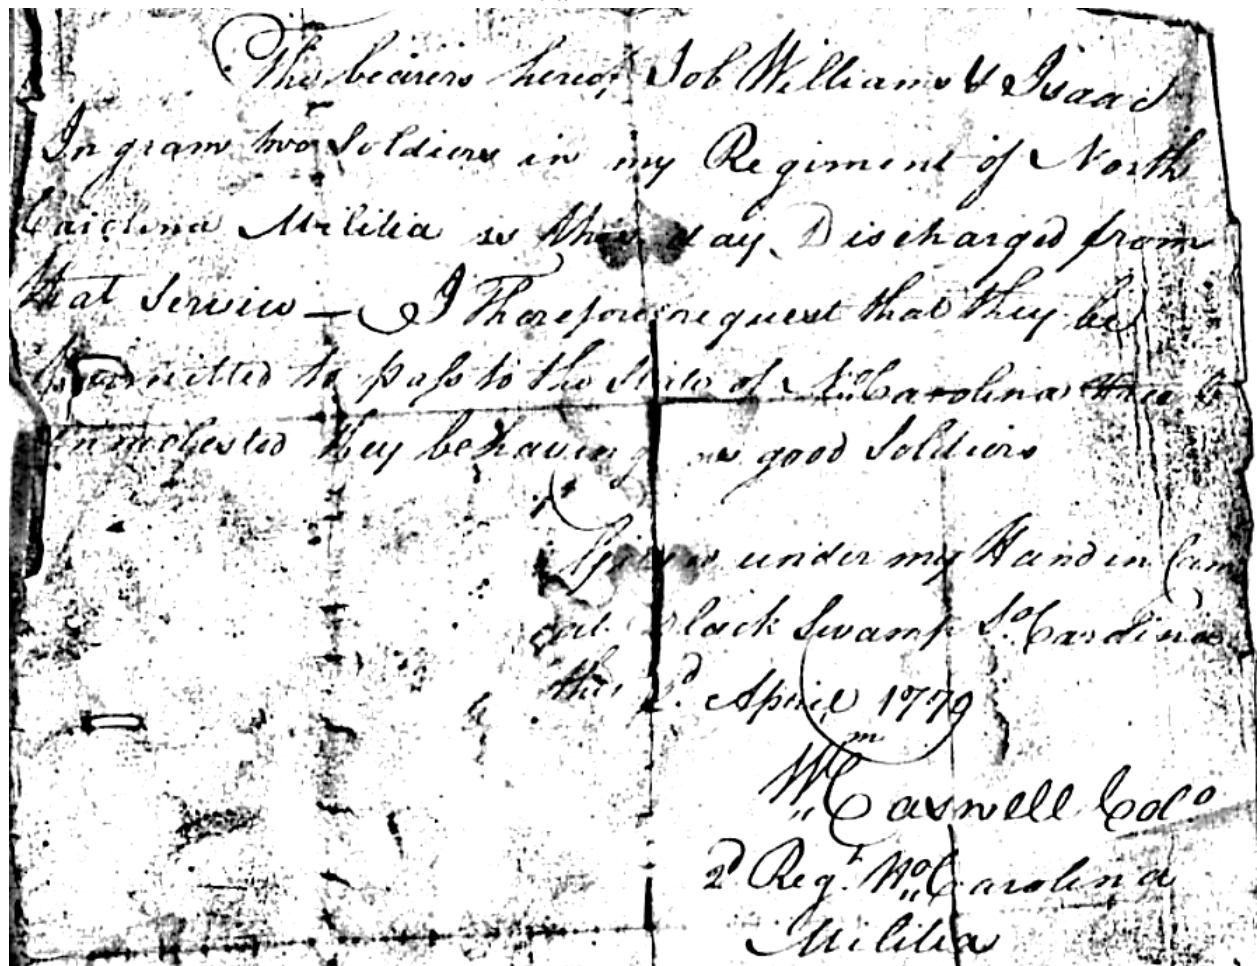 The bearers hereof Job Williams & Isaac
Ingram two Soldiers in my Regiment of North
Carolina Militia is this day Discharged from
that Service — I Therefore request that they be
permitted to pass to the State of No. Carolina free &
unmolested they behaving as good Soldiers
Given under my Hand in Cam
at Black Swamp So. Carolina
this 2d. April 1779
Wm Caswell Colo
2d Regt. No. Carolina
Militia